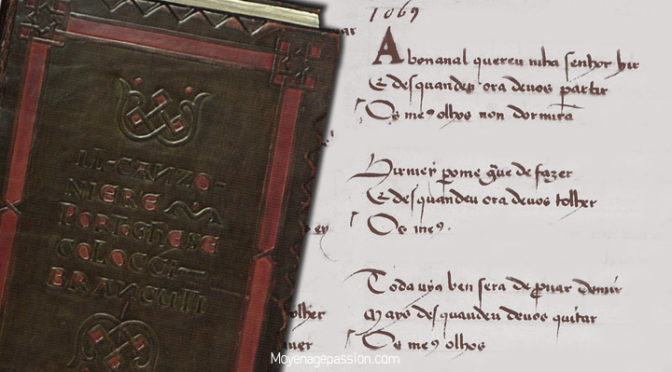 IL·CANZO-
NIERE
PORTGHESE
COLOCCI
BRANCUTI
1069
A bonanal quereu miha senhor hir
E desquandeu ora devos partir
Os meꝯ olhos non dormira
Hirmey pome de fazer
E desquandeu ora devos tolher
Os meꝯ.
Toda vya ben sera de demir
Mays desquandeu devos quitar
Os meꝯ olhos
ar
ey
olher
uer
Moyenagepassion.com